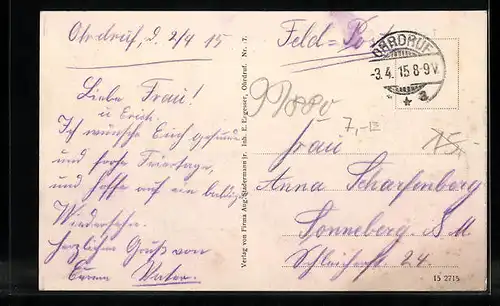 Ohrdruf, d. 2/4 15
Liebe Frau!
u Erich.
Ich wünsche Euch gesunde
und frohe Feiertage,
und hoffe auf ein baldiges
Wiedersehn.
Herzlichen Gruß von
Eurem Vater.
Verlag von Firma Aug. Stadermann jr. Inh. E. Eugesser, Ohrdruf. Nr. 7.
Feld=Post
OHRDRUF
-3.4.15 8-9V.
* a
99/880
7,-
Frau
Anna Scharfenberg
Sonneberg. S. M
Schleicherstr. 24.
15 2715